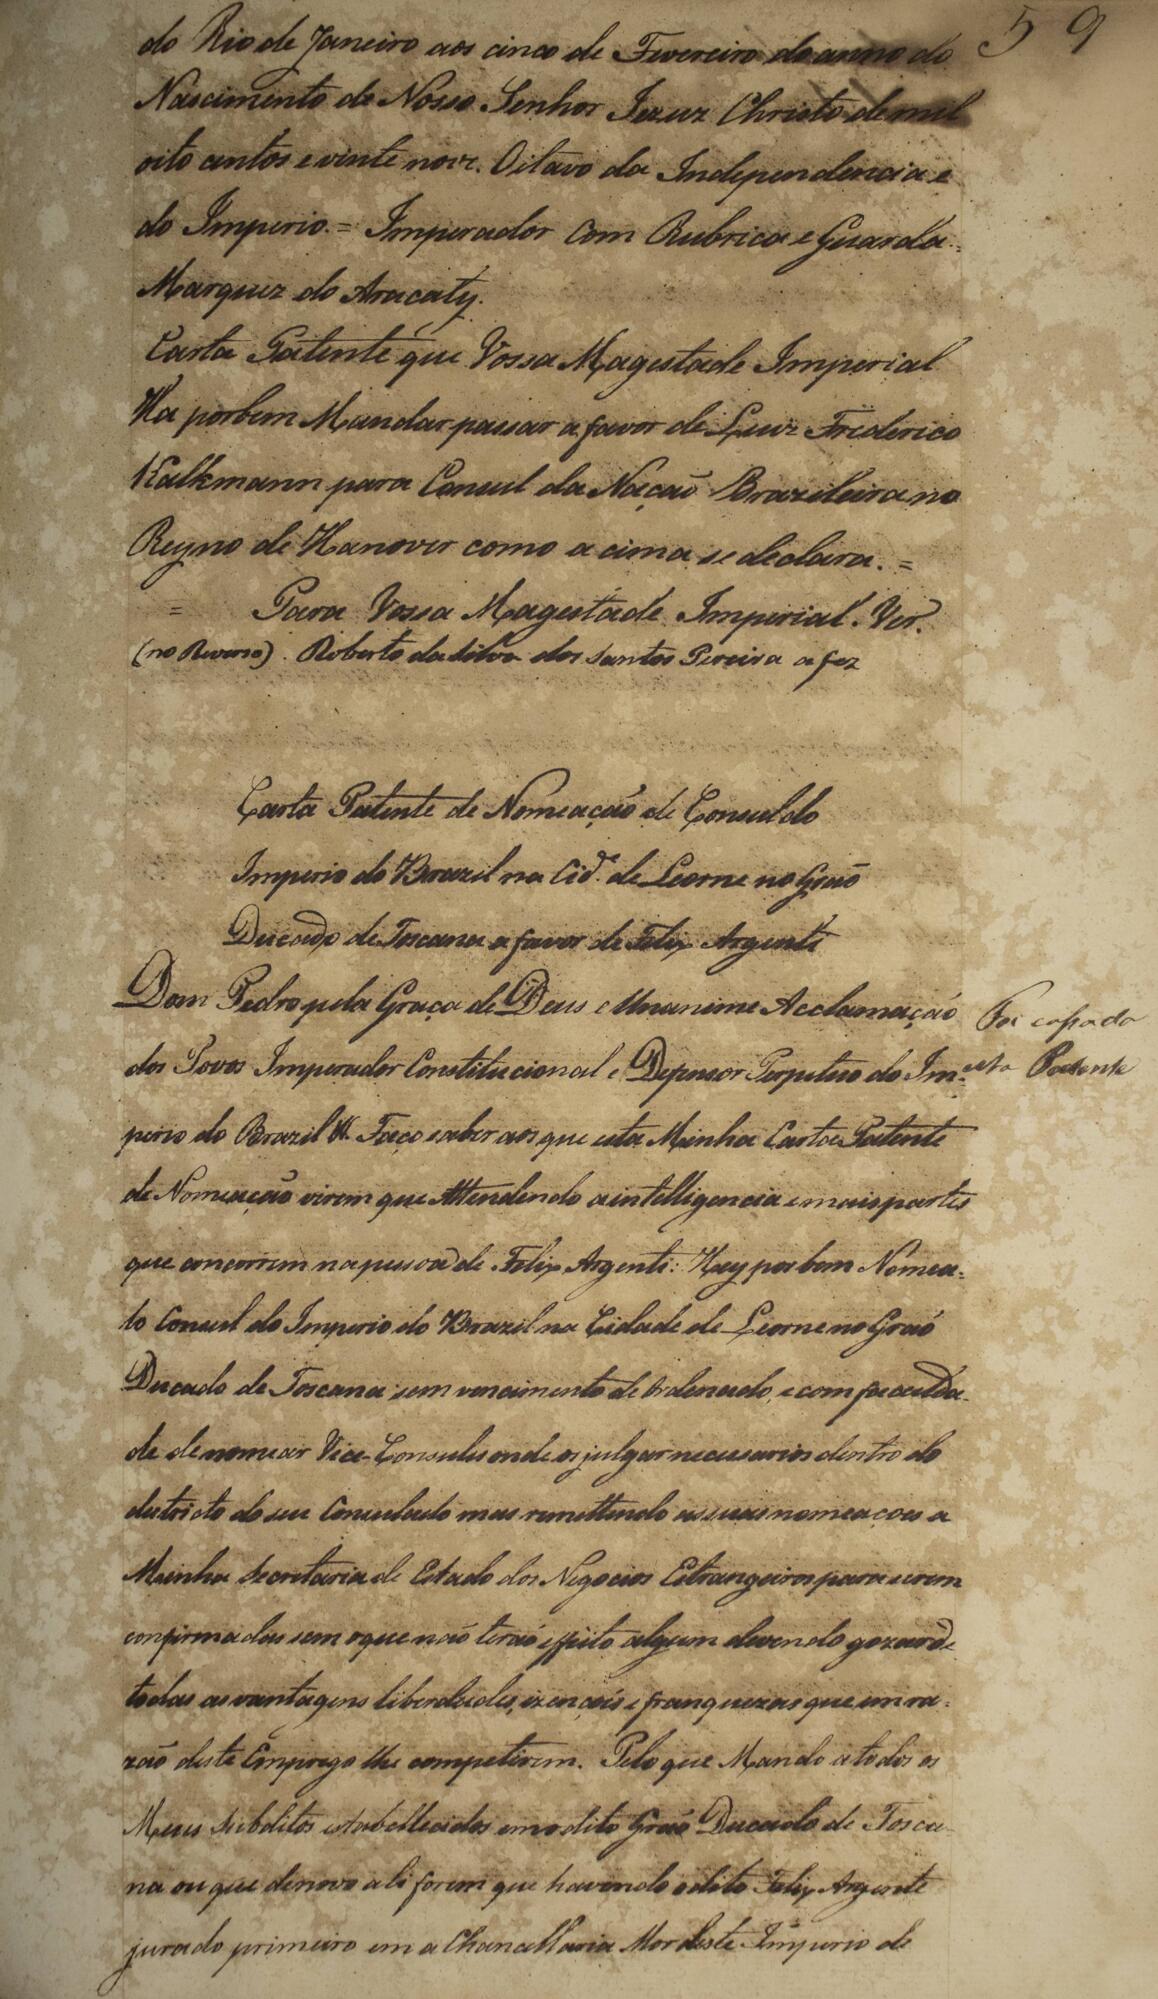 59
do Rio de Janeiro aos cinco de Fevereiro do anno do
Nascimento de Nosso Senhor Jezuz Christo de mil
oito centos e vinte nove. Oitavo da Independencia e
do Imperio. = Imperador Com Rubrica e Guarda =
Marquez do Aracaty.
Carta Patente que Vossa Magestade Imperial
Ha por bem Mandar passar a favor de Luiz Frederico
Kalkmann para Consul da Nação Brazileira no
Reyno de Hanover como a cima se declara. =
= Para Vossa Magestade Imperial. Ver.
(no Reverso). Roberto da Silva dos Santos Pereira a fez
Carta Patente de Nomeação de Consul do
Imperio do Brazil na Cid.e de Leorne no Graõ
Ducado de Toscana a favor de Felix Argenti
Dom Pedro pela Graça de Deus e Unanime Acclamação
dos Povos Imperador Constitucional e Defensor Perpetuo do Im=
perio do Brazil &. Faço saber aos que esta Minha Carta Patente
de Nomeação virem que Attendendo a intelligencia e mais partes
que concorrem na pessoa de Felix Argenti: Hey por bem Nomea=
lo Consul do Imperio do Brazil na Cidade de Leorne no Graõ
Ducado de Toscana sem vencimento de Ordenado, e com faculda=
de de nomear Vice-Consules onde os julgar necessarios dentro do
districto do seu Consulado mas remettendo as suas nomeacoes a
Minha Secretaria de Estado dos Negocios Estrangeiros para serem
confirmadas sem o que naõ teraõ effeito algum devendo gozar de
todas as vantagens liberdades, izencoẽs e franquezas que em ra=
zaõ deste Emprego lhe competirem. Pelo que Mando a todos os
Meus Subditos estabellecidos em o dito Graõ Ducado de Tosca=
na ou que de novo ali forem que havendo o dito Felix Argente
jurado primeiro em a Chancellaria Mor deste Imperio de
Foi copiada
esta Patente